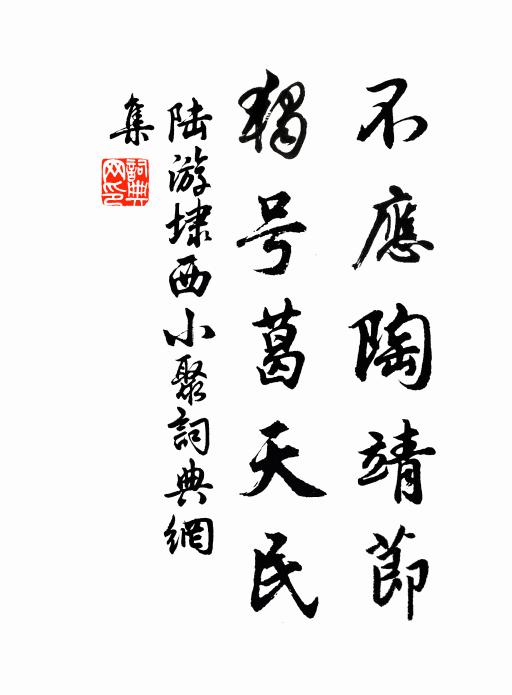 不應陶靖節
獨号葛天民
陸游埭西小聚詞典網
集
詞典网印